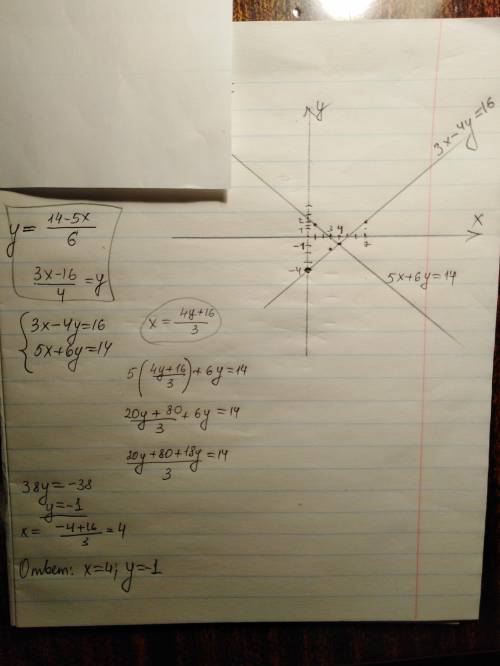 y
3x-4y=16
x
2
1
3 4
7
-1
-4
5x+6y=14
y = \frac{14-5x}{6}
\frac{3x-16}{4} = y
{ 3x-4y=16
5x+6y=14
x = \frac{4y+16}{3}
5(\frac{4y+16}{3})+6y=14
\frac{20y+80}{3}+6y=14
\frac{20y+80+18y}{3}=14
38y=-38
y=-1
x= \frac{-4+16}{3}=4
Ответ: x=4; y=-1